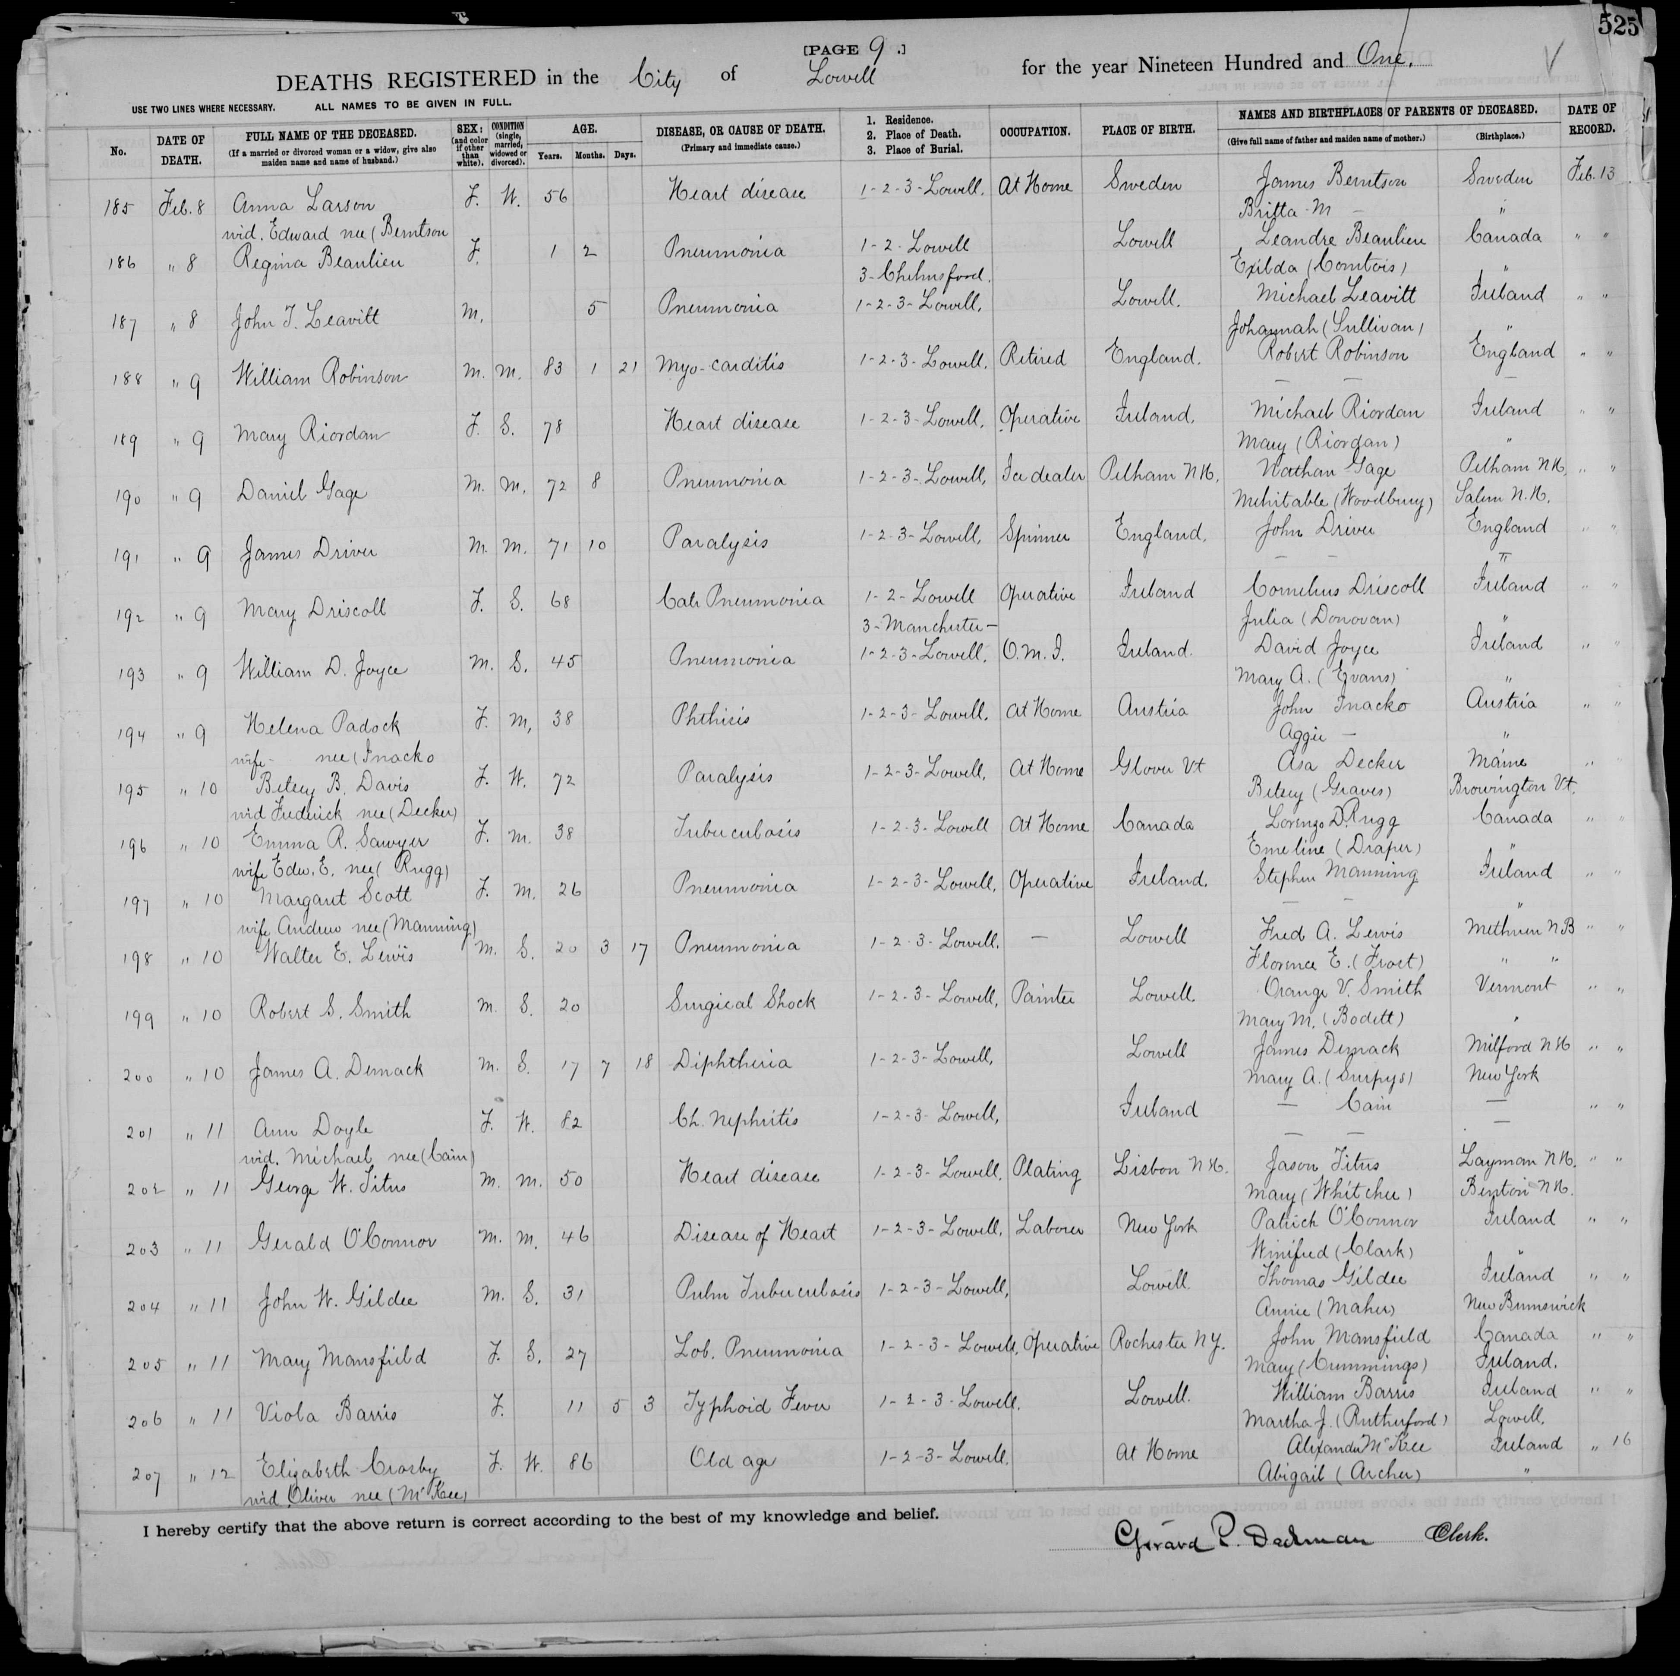 525
[PAGE 9.]
DEATHS REGISTERED in the City of Lowell for the year Nineteen Hundred and One.
USE TWO LINES WHERE NECESSARY. ALL NAMES TO BE GIVEN IN FULL.
No. | DATE OF DEATH. | FULL NAME OF THE DECEASED. (If a married or divorced woman or a widow, give also maiden name and name of husband.) | SEX: (and color if other than white). | CONDITION (single, married, widowed or divorced). | AGE. Years. Months. Days. | DISEASE, OR CAUSE OF DEATH. (Primary and immediate cause.) | 1. Residence. 2. Place of Death. 3. Place of Burial. | OCCUPATION. | PLACE OF BIRTH. | NAMES AND BIRTHPLACES OF PARENTS OF DECEASED. (Give full name of father and maiden name of mother.) (Birthplace.) | DATE OF RECORD.
185 Feb. 8 Anna Larson F. W. 56 Heart disease 1-2-3-Lowell, At Home Sweden James Berntson Sweden Feb. 13
wid. Edward nee (Berntson Britta M — "
186 " 8 Regina Beaulieu F. 1 2 Pneumonia 1-2-Lowell Lowell Leandre Beaulieu Canada " "
3-Chelmsford. Exilda (Comtois) "
187 " 8 John J. Leavitt M. 5 Pneumonia 1-2-3-Lowell, Lowell. Michael Leavitt Ireland " "
Johannah (Sullivan) "
188 " 9 William Robinson M. M. 83 1 21 Myo-carditis 1-2-3-Lowell. Retired England. Robert Robinson England " "
— — —
189 " 9 Mary Riordan F. S. 78 Heart disease 1-2-3-Lowell, Operative Ireland. Michael Riordan Ireland " "
Mary (Riordan) "
190 " 9 Daniel Gage M. M. 72 8 Pneumonia 1-2-3-Lowell, Ice dealer Pelham N.H. Nathan Gage Pelham N.H. " "
Mehitable (Woodbury) Salem N.H.
191 " 9 James Driver M. M. 71 10 Paralysis 1-2-3-Lowell, Spinner England. John Driver England " "
— — "
192 " 9 Mary Driscoll F. S. 68 Cath Pneumonia 1-2-Lowell Operative Ireland Cornelius Driscoll Ireland " "
3-Manchester- Julia (Donovan) "
193 " 9 William D. Joyce M. S. 45 Pneumonia 1-2-3-Lowell, O.M.I. Ireland. David Joyce Ireland " "
Mary A. (Evans) "
194 " 9 Helena Padock F. M. 38 Phthisis 1-2-3-Lowell. At Home Austria John Inacko Austria " "
wife- nee (Inacko Aggie — "
195 " 10 Betsey B. Davis F. W. 72 Paralysis 1-2-3-Lowell, At Home Glover Vt Asa Decker Maine " "
wid Frederick nee (Decker) Betsey (Graves) Browington Vt.
196 " 10 Emma R. Sawyer F. M. 38 Tuberculosis 1-2-3-Lowell At Home Canada Lorenzo D. Rugg Canada " "
wife Edw. E. nee (Rugg) Emeline (Draper) "
197 " 10 Margaret Scott F. M. 26 Pneumonia 1-2-3-Lowell, Operative Ireland. Stephen Manning Ireland " "
wife Andrew nee (Manning) — — "
198 " 10 Walter E. Lewis M. S. 20 3 17 Pneumonia 1-2-3-Lowell. — Lowell Fred A. Lewis Methuen N.B " "
Florence E. (Frost) " "
199 " 10 Robert S. Smith M. S. 20 Surgical Shock 1-2-3-Lowell, Painter Lowell. Orange V. Smith Vermont " "
Mary M. (Bodett) "
200 " 10 James A. Demack M. S. 17 7 18 Diphtheria 1-2-3-Lowell, Lowell James Demack Milford N.H " "
Mary A. New York
201 " 11 Ann Doyle F. W. 82 Ch. Nephritis 1-2-3-Lowell, Ireland — Cain — " "
wid. Michael nee (Cain) — — —
202 " 11 George W. Titus M. M. 50 Heart disease 1-2-3-Lowell, Plating Lisbon N.H. Jason Titus Layman N.H. " "
Mary (Whitcher) Benton N.H.
203 " 11 Gerald O'Connor M. M. 46 Disease of Heart 1-2-3-Lowell, Laborer New York Patrick O'Connor Ireland " "
Winifred (Clark) "
204 " 11 John W. Gildee M. S. 31 Pulm Tuberculosis 1-2-3-Lowell, Lowell Thomas Gildee Ireland " "
Annie (Maher) New Brunswick
205 " 11 Mary Mansfield F. S. 27 Lob. Pneumonia 1-2-3-Lowell, Operative Rochester N.Y. John Mansfield Canada " "
Mary (Cummings) Ireland.
206 " 11 Viola Barris F. 11 5 3 Typhoid Fever 1-2-3-Lowell. Lowell. William Barris Ireland " "
Martha J. (Rutherford) Lowell.
207 " 12 Elizabeth Crosby F. W. 86 Old age 1-2-3-Lowell. At Home Alexander McKee Ireland " 16
wid Oliver nee (McKee) Abigail (Archer) "
I hereby certify that the above return is correct according to the best of my knowledge and belief.
Girard P. Dadman Clerk.